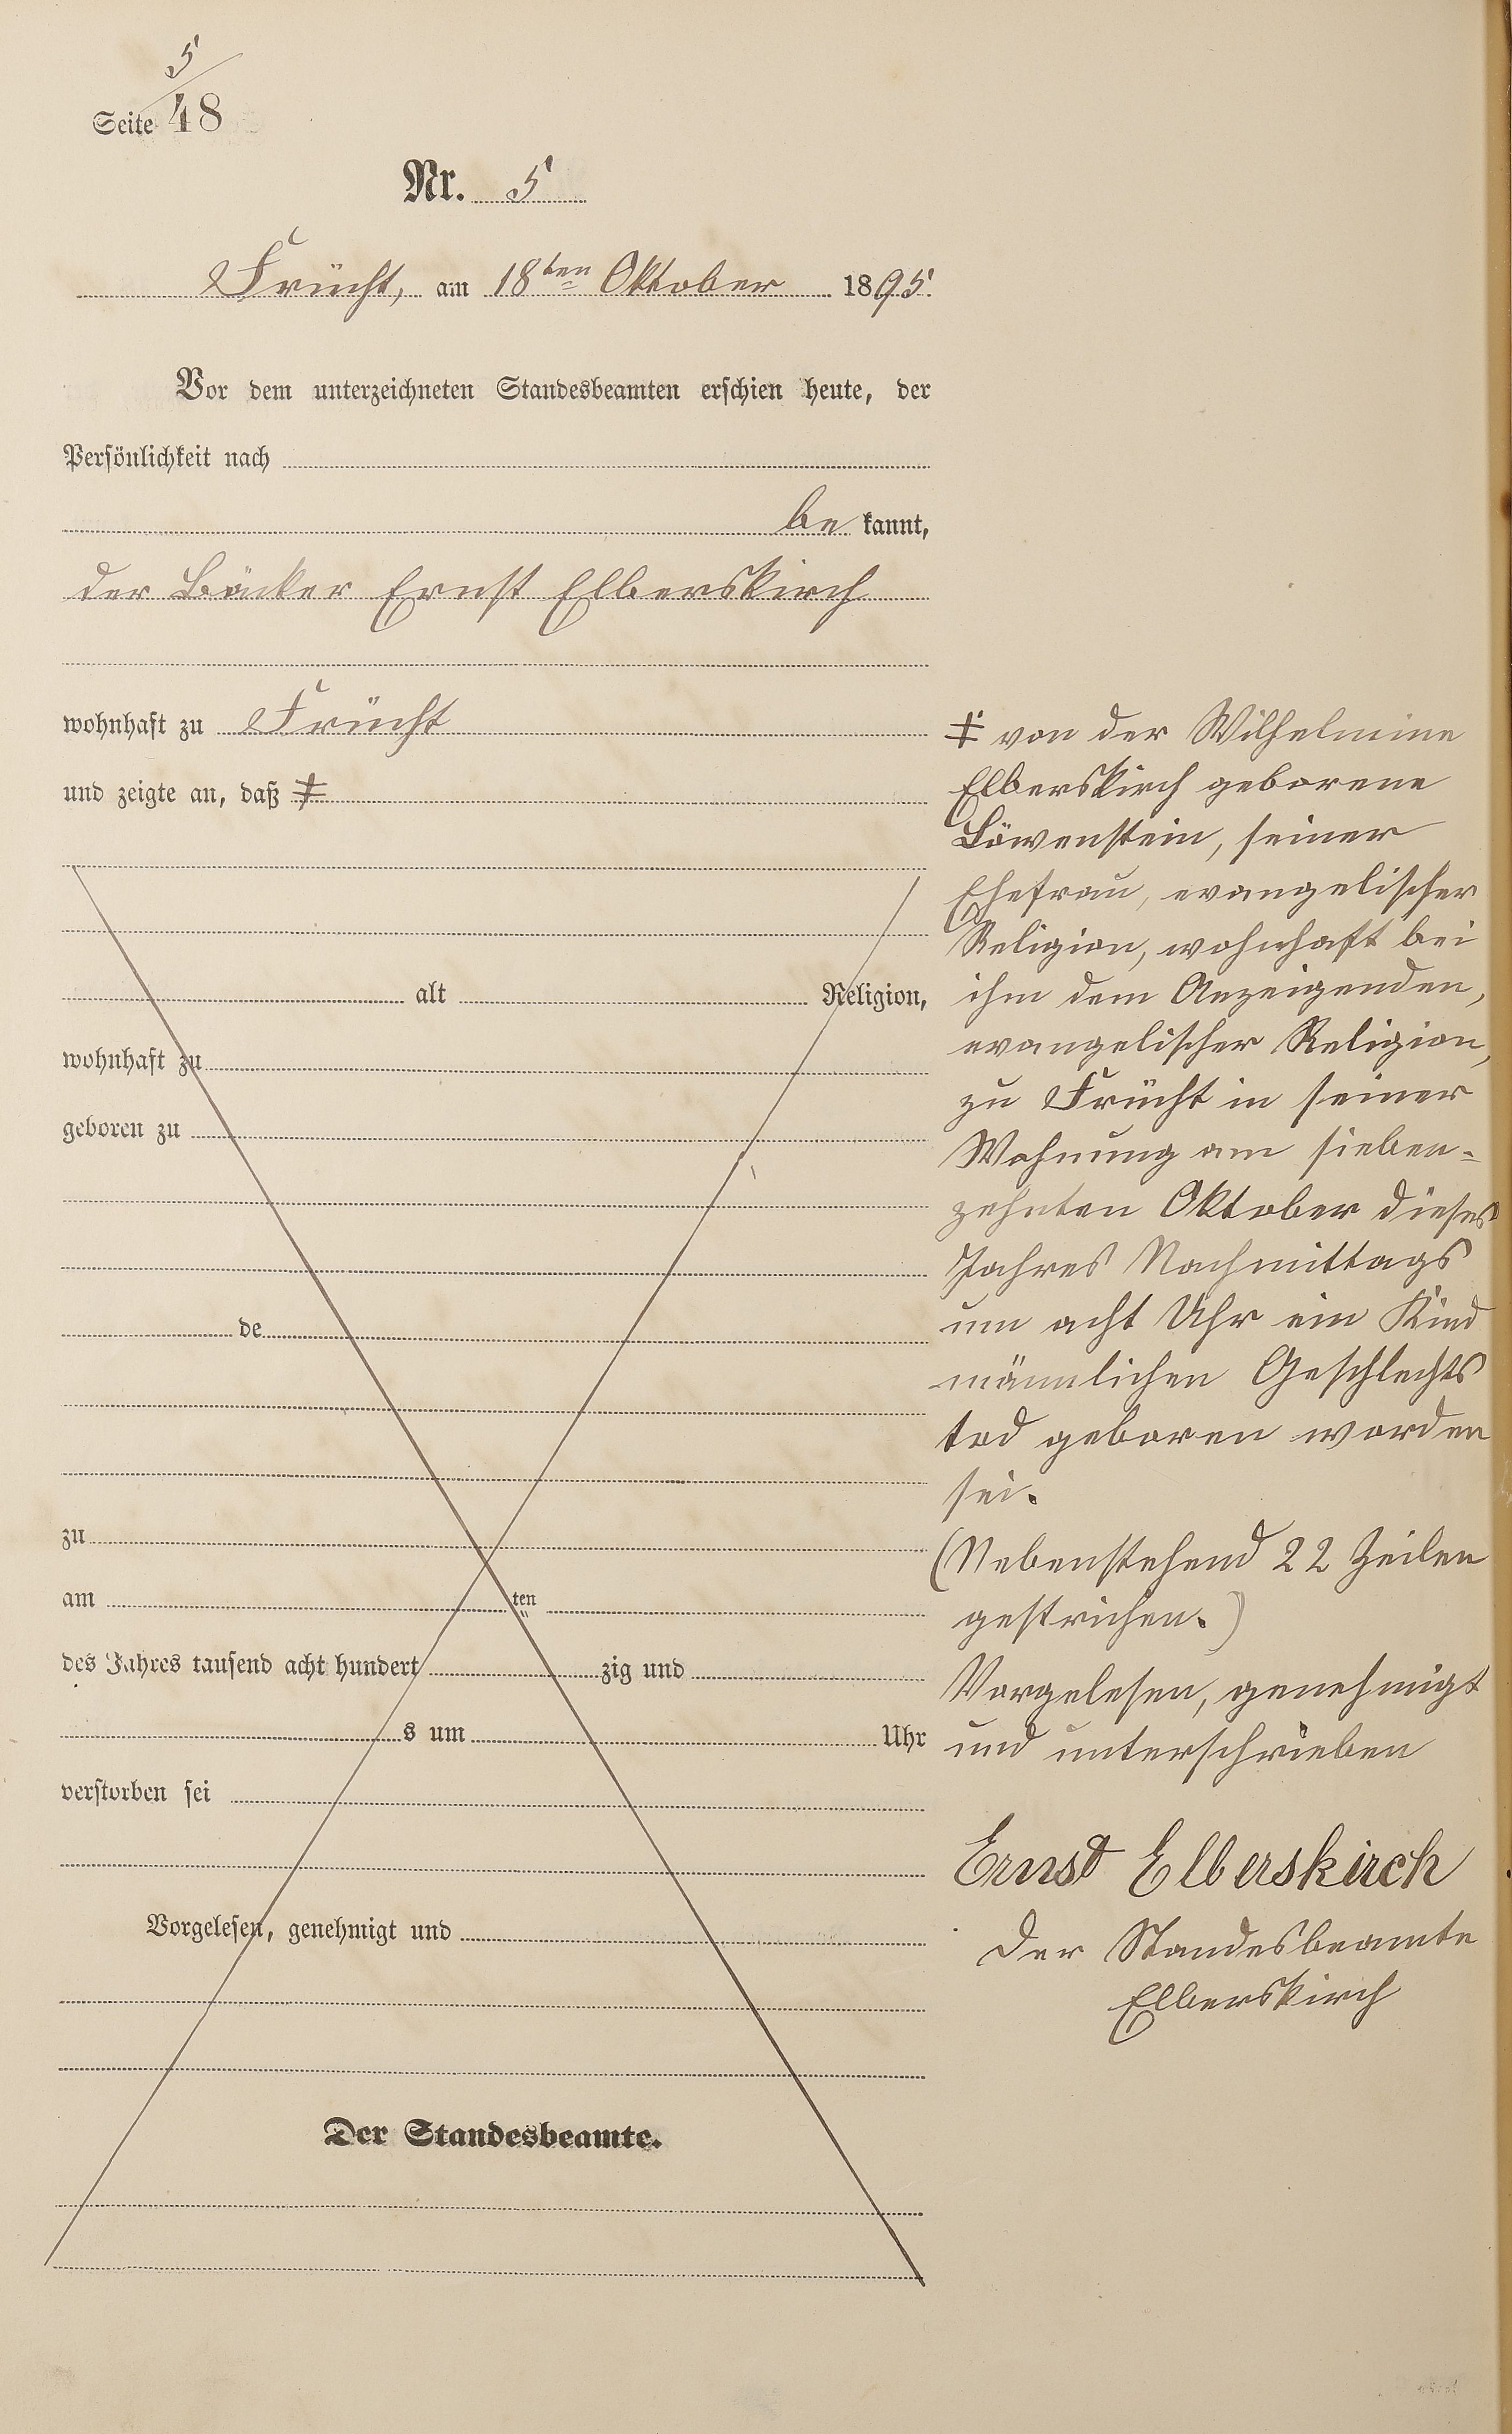 5
Seite 48
Nr. 5
Frücht, am 18ten Oktober 1895.
Vor dem unterzeichneten Standesbeamten erschien heute, der
Persönlichkeit nach
be kannt,
der Bäcker Ernst Elberskirch
wohnhaft zu Frücht
und zeigte an, daß ‡
alt Religion,
wohnhaft zu
geboren zu
de
zu
am ten
des Jahres tausend acht hundert zig und
s um Uhr
verstorben sei
Vorgelesen, genehmigt und
Der Standesbeamte.
‡ von der Wilhelmine
Elberskirch geborene
Löwenstein, seiner
Ehefrau, evangelischer
Religion, wohnhaft bei
ihm dem Anzeigenden,
evangelischer Religion,
zu Frücht in seiner
Wohnung am sieben-
zehnten Oktober dieses
Jahres Nachmittags
um acht Uhr ein Kind
männlichen Geschlechts
tod geboren worden
sei.
(Nebenstehend 22 Zeilen
gestrichen.)
Vorgelesen, genehmigt
und unterschrieben
Ernst Elberskirch
Der Standesbeamte
Elberskirch